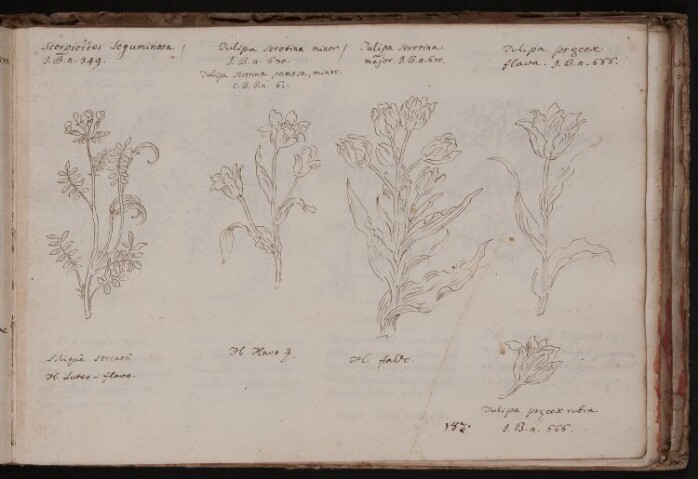 Scorpioides leguminosa
I. B. n. 349.
Tulipa serotina minor
I. B. n. 670.
Tulipa serotina, ramosa, minor.
C. B. P. n. 61.
Tulipa serotina
major. I. B. n. 670.
Tulipa pręcox
flava. I. B. n. 666.
Siliquâ
Fl. Luteo-flavo.
Fl. flavo
Fl. flavo.
Tulipa pręcox rubra
I. B. n. 666.
187.